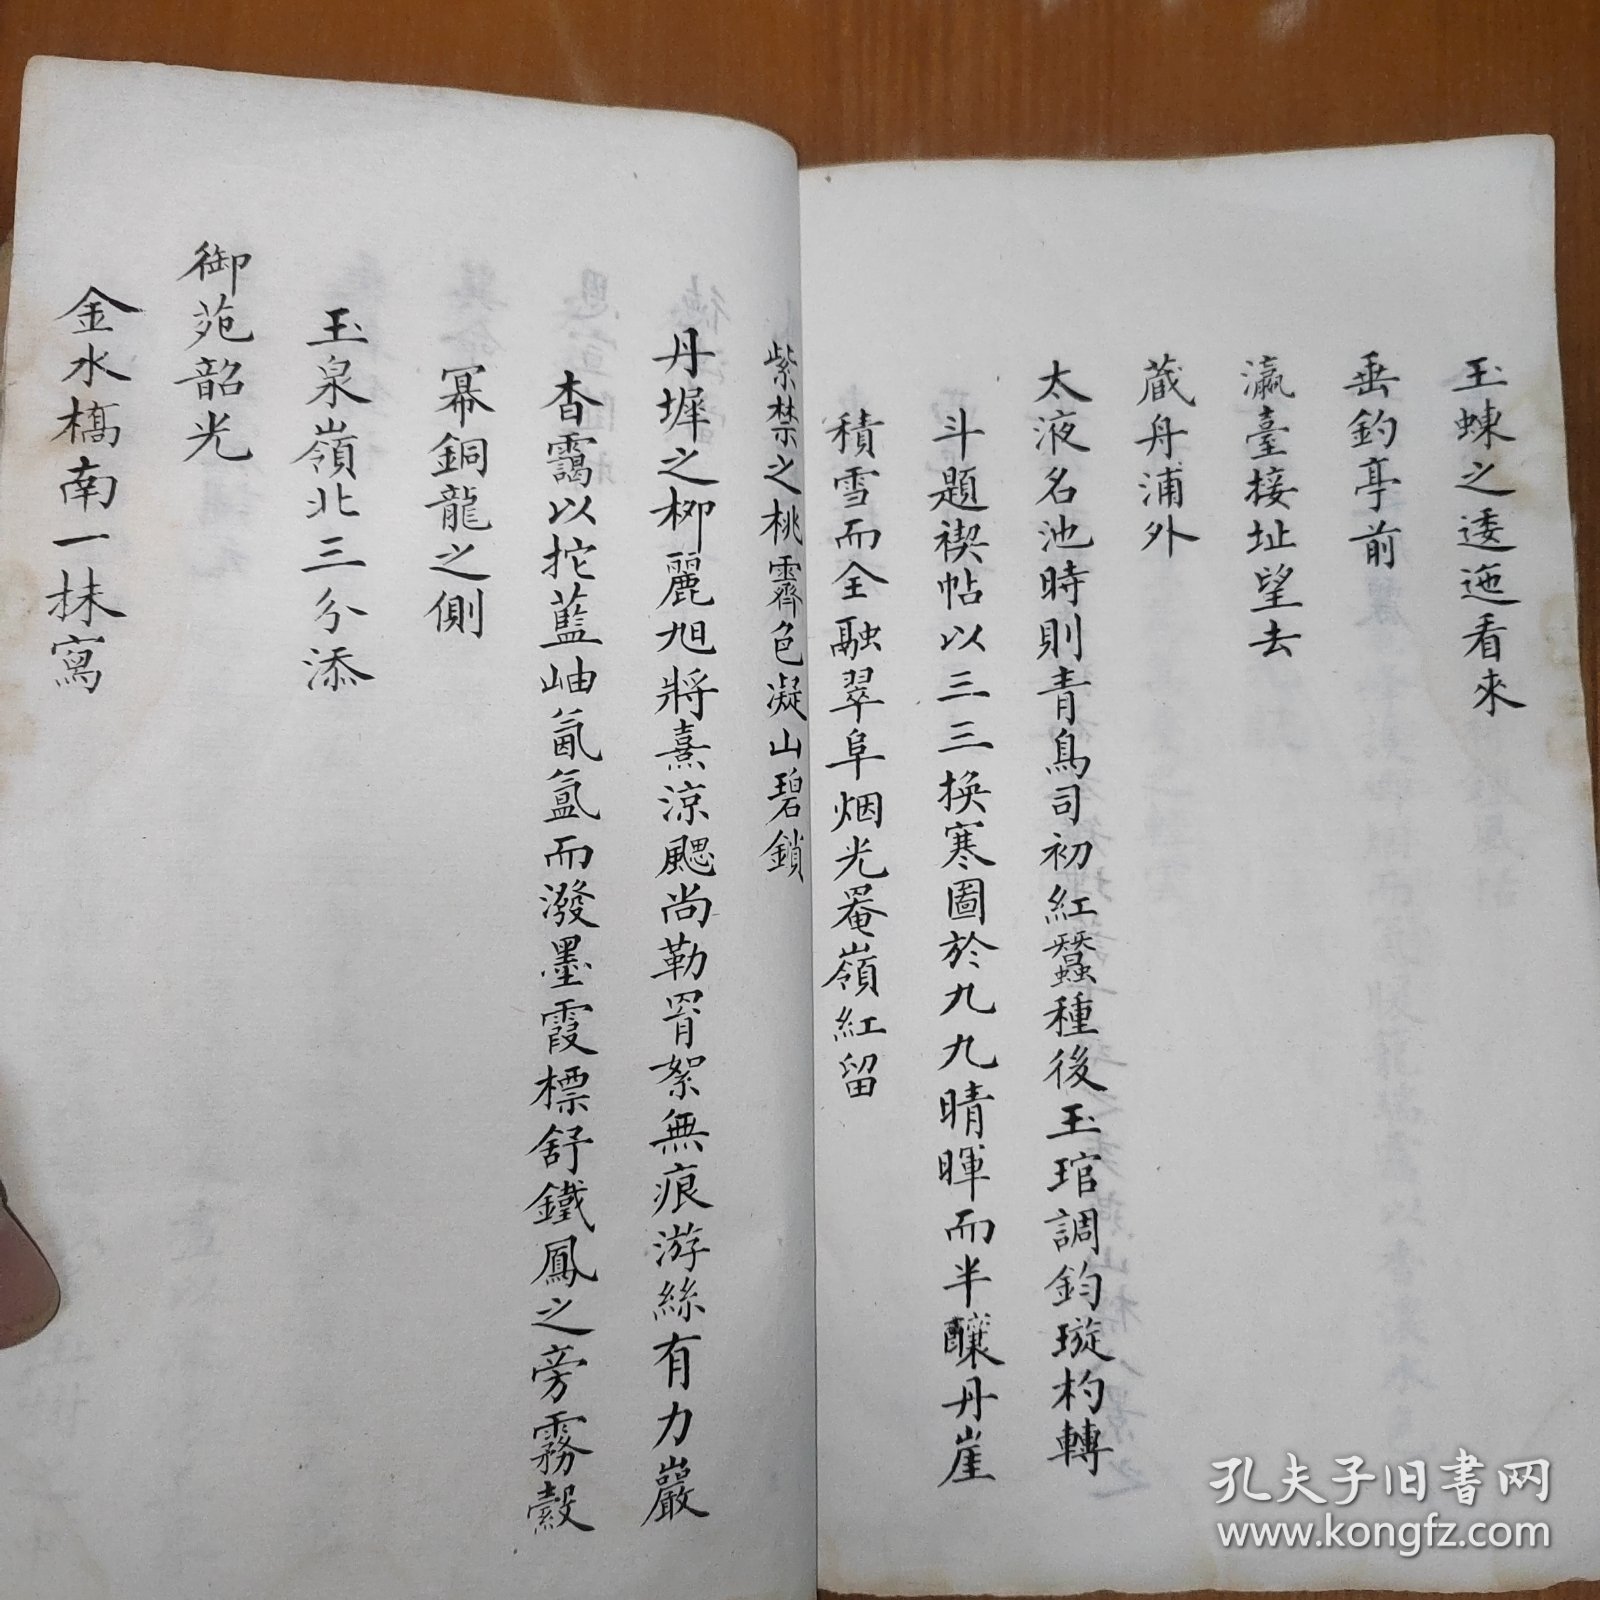 玉蝀之逶迤看來
垂釣亭前
瀛臺接址望去
蔵舟浦外
太液名池時則青鳥司初紅蠶種後玉琯調鈞璇杓轉
斗題禊帖以三三換寒圖於九九晴暉而半釀丹崖
積雪而全融翠阜烟光罨嶺紅留
紫禁之桃霽色凝山碧鎖
丹墀之柳麗旭將熹涼颸尚勒罥絮無痕游絲有力巖
杳靄以拕藍岫氤氳而潑墨霞標舒鐵鳳之旁霧縠
冪銅龍之側
玉泉嶺北三分添
御苑韶光
金水橋南一抹寫
孔夫子旧书网
www.kongfz.com